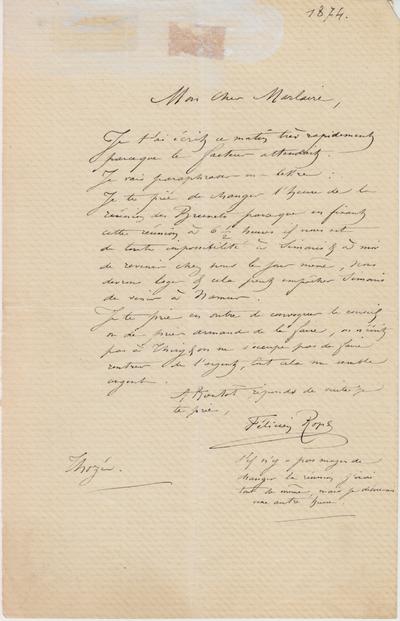 1874.
Mon cher Marlaire,
Je t'ai écrit ce matin très rapidement
parceque le facteur attendait.
Je vais paraphraser ma lettre :
Je te prie de changer l'heure de la
réunion des parceque en fixant
cette réunion à 6 ½ heures il nous est
de toute impossibilité à Simonis & à moi
de revenir chez nous le jour même, nous
devrons loger & cela peut empêcher Simonis
de venir à Namur.
Je te prie en outre de convoquer le conseil
ou de prier Armand de le faire, on n'écrit
pas à on ne s'occupe pas de faire
rentrer de l'argent, tout cela me semble
urgent.
A bientôt réponds de suite je
te prie,
Félicien Rops
Thozée.
S'il n'y a pas moyen de
changer la réunion j'irai
tout de même, mais je désirerais
une autre heure.